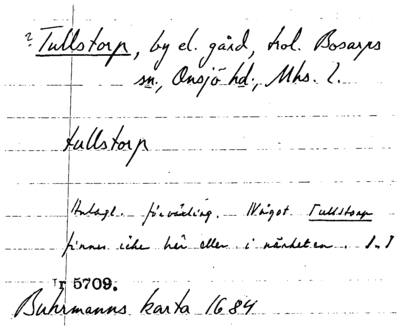 ? Tullstorp, by el. gård, trol. Bosarps
sn., Onsjö hd., Mhs. l.
tullstorp
Antagl. förväxling. Något Tullstorp
finnes icke här eller i närheten. I. I
r 5709.
Buhrmanns karta 1684